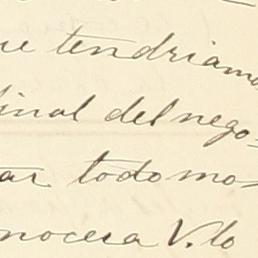 ue tendriamo
final del nego-
ar todo mo-
nocera V. lo